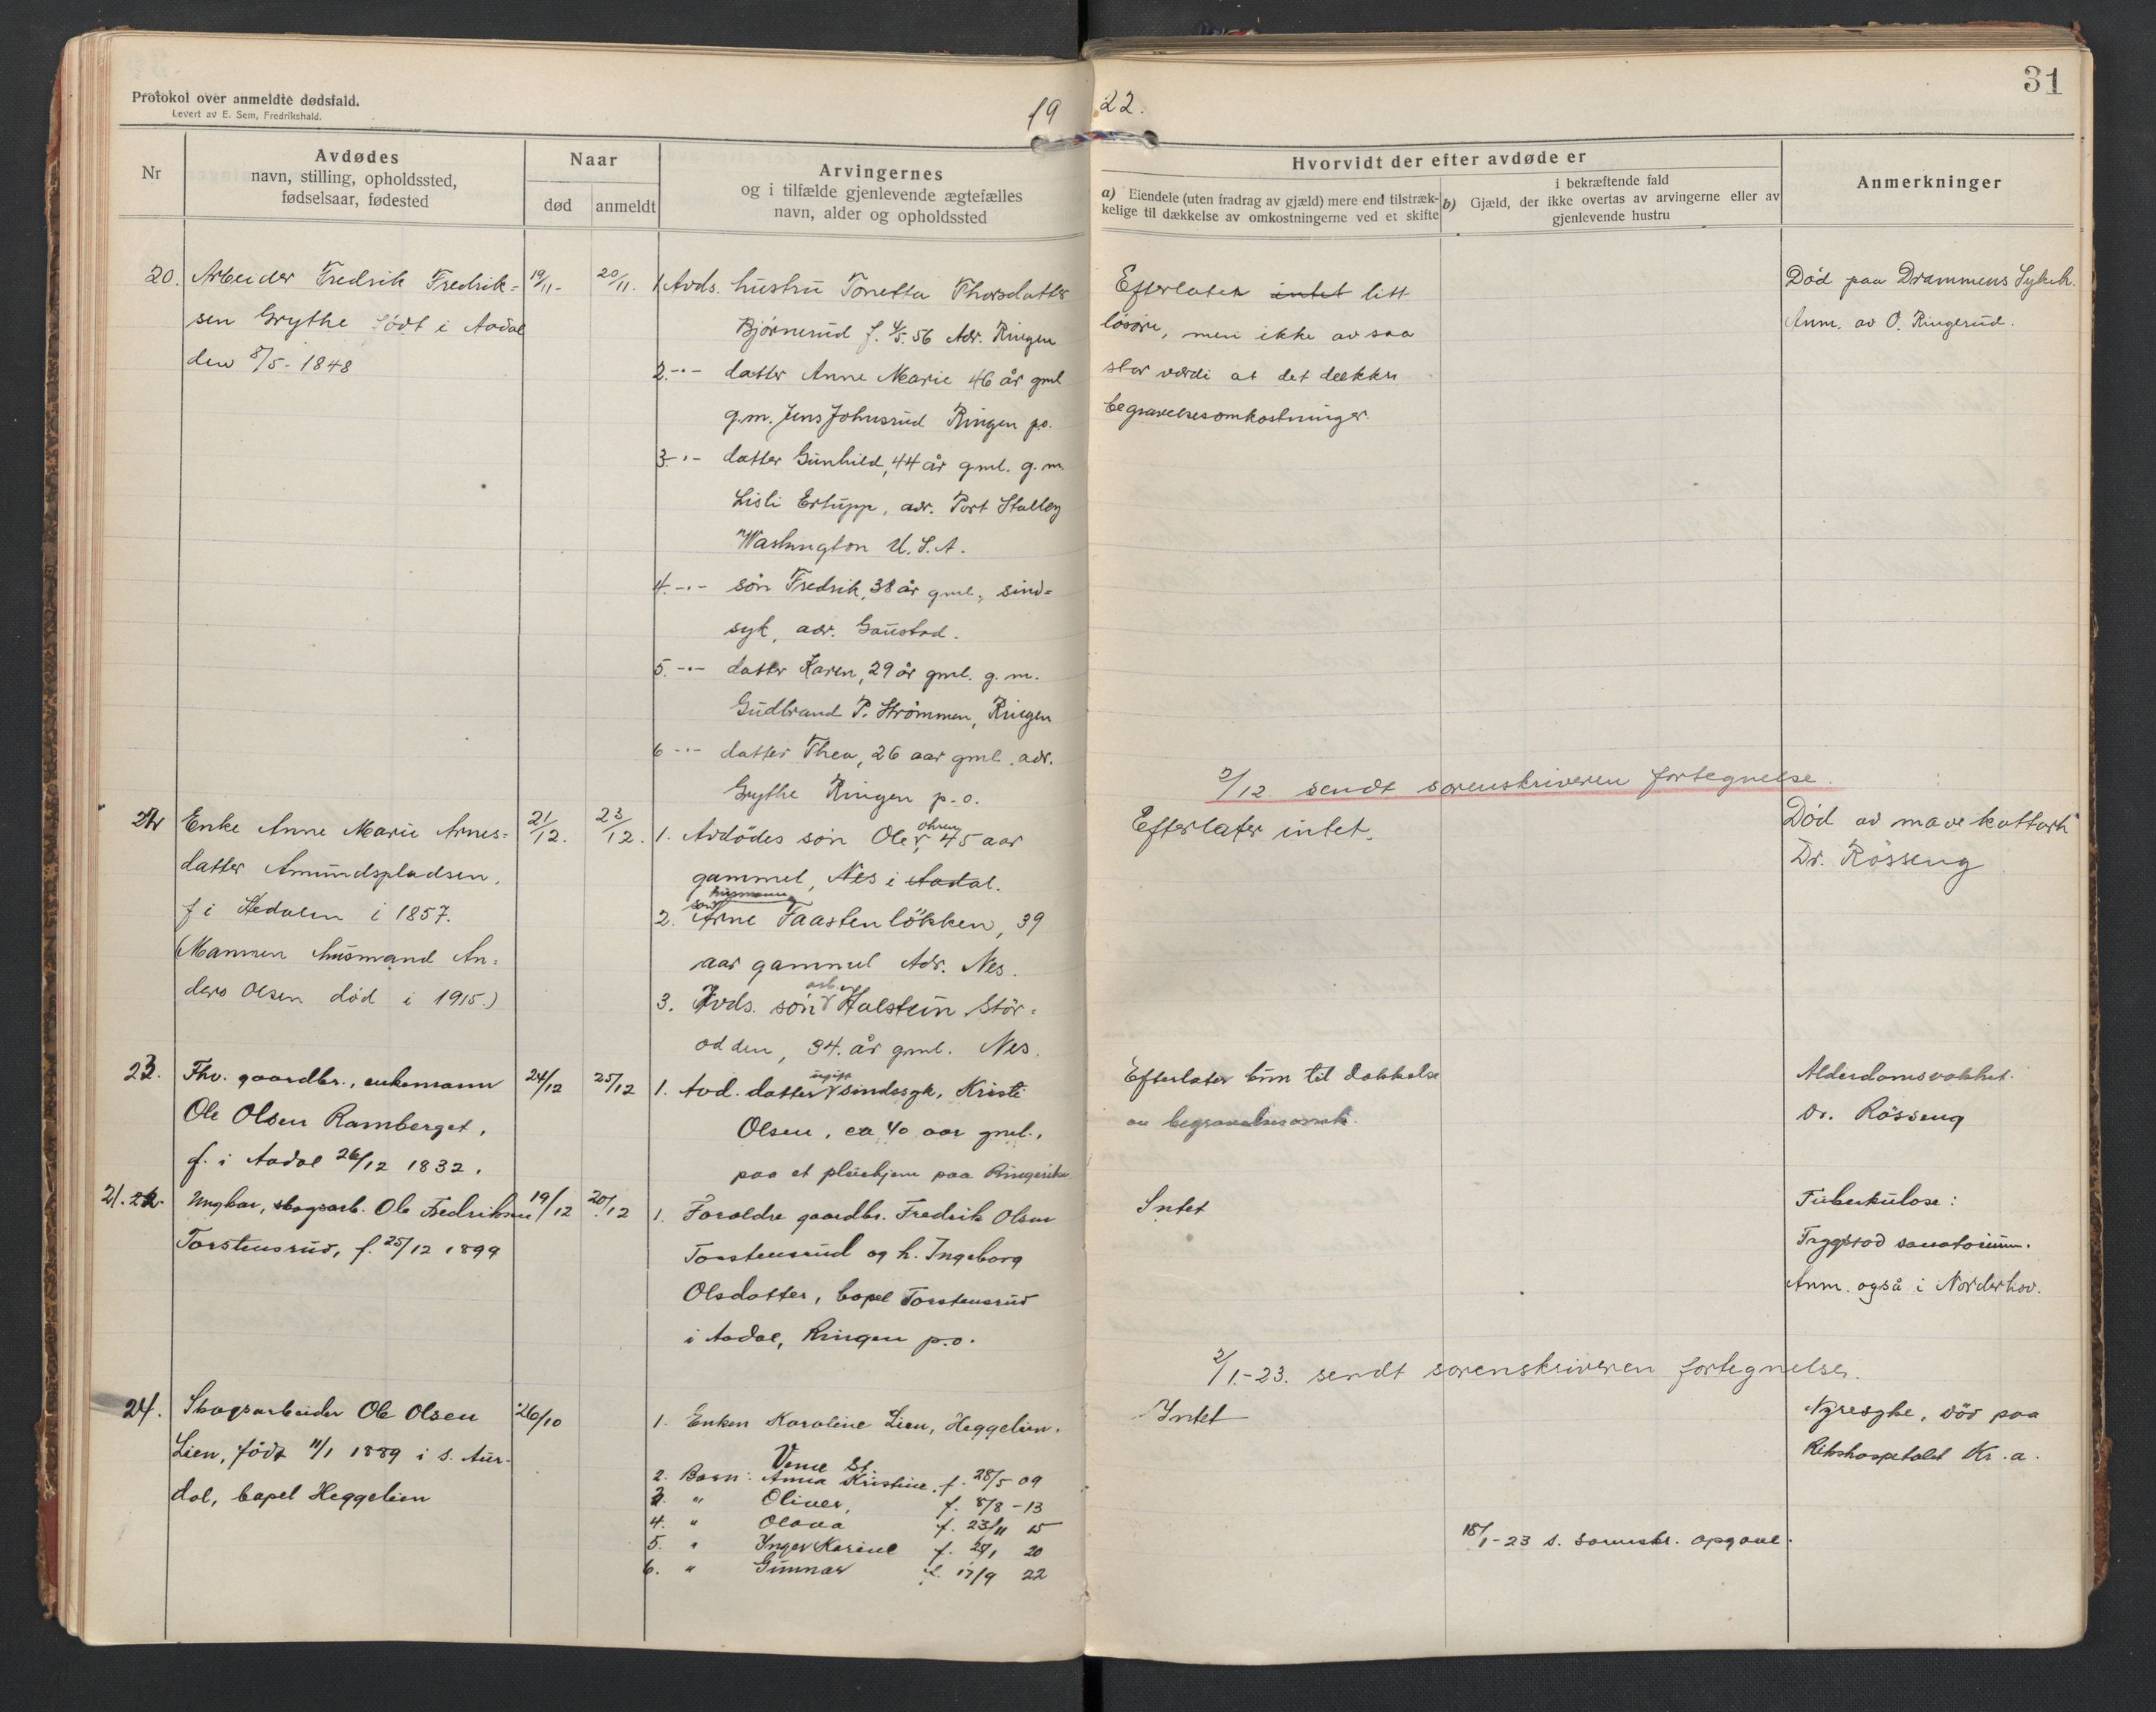 Protokol over anmeldte dødsfald.
Levert av E. Sem, Fredrikshald.
19 22.
31
Nr
Avdødes
navn, stilling, opholdssted,
fødselsaar, fødested
Naar
død
anmeldt
Arvingernes
og i tilfælde gjenlevende ægtefælles
navn, alder og opholdssted
Hvorvidt der efter avdøde er
a) Eiendele (uten fradrag av gjæld) mere end tilstræk-
kelige til dækkelse av omkostningerne ved et skifte
i bekræftende fald
b) Gjæld, der ikke overtas av arvingerne eller av
gjenlevende hustru
Anmerkninger
20.
Arbeider Fredrik Fredrik=
sen Grythe født i Aadal
den 8/5-1848
19/11-
20/11.
1. Avds. hustru Tonetta Thorsdatter
Bjørnerud f. 4/5.56 Adr. Ringen
2. -"- datter Anne Marie 46 år gml
g.m. Jens Johnsrud Ringen p.o.
3. -"- datter Gunhild, 44 år gml. g.m.
Lisli Ertupp, adr. Port Stalley
Washington U.S.A.
4. -"- søn Fredrik, 38 år gml., sind=
syk, adr. Gaustad.
5. -"- datter Karen, 29 år gml. g.m.
Gudbrand P. Strømmen, Ringen
6 -"- datter Thea, 26 aar gml. adr.
Grythe Ringen p.o.
Efterlater intet litt
løsøre, men ikke av saa
stor værdi at det dekker
begravelsesomkostninger.
Død paa Drammens Sykeh.
Anm. av O. Ringerud.
2/12. sendt sorenskriveren fortegnelse.
22
Enke Anne Marie Arnes=
datter Amundspladsen,
f i Hedalen i 1857.
(Mannen husmand An=
ders Olsen død i 1915.)
21/12.
23/12.
1. Avdødes søn Ole, 45 aar
gammel, Nes i Aadal.
husmann
søn
2. Arne Faastenløkken, 39
aar gammel Adr. Nes.
arb.
3. Avds. søn Halstein Stór=
odden, 34. år gml. Nes.
Efterlater intet.
Død av mavekattarh
Dr. Rösseng
23.
Fhv. gaardbr., enkemann
Ole Olsen Ramberget,
f. i Aadal 26/12 1832.
24/12
25/12
ugift
1. Avd. datter sindssyk, Kristi
Olsen, ca 40 aar gml.,
paa et pleiehjem paa Ringerike
Efterlater kun til dækkelse
av begravelsesomk.
Alderdomssvakhet.
Dr. Rösseng
21.
Ungkar, skogsarb. Ole Fredriksen
Torstensrud, f. 25/12 1899
19/12
20/12
1. Foraldre gaardbr. Fredrik Olsen
Torstensrud og h. Ingeborg
Olsdatter, bopel Torstensrud
i Aadal, Ringen p.o.
Intet
Tuberkulose:
Tryggstad sanatorium.
Anm. også i Norderhov.
2/1.-23. sendt sorenskriveren fortegnelse.
24.
Skogsarbeider Ole Olsen
Lien, født 11/1 1889 i S. Aur-
dal, bopel Heggelien
26/10
1. Enken Karoline Lien, Heggelien.
Veme St.
2. Barn: Anna Kristine, f. 28/5 09
3. " Oliver, f. 8/8-13
4. " Olava f. 23/11 15
5. " Inger Karine f. 29/1 20
6. " Gunnar f. 17/9 22
Intet
Nyresyke, død paa
Rikshospetalet Kr.a.
18/1-23 s. sorenskr. opgave.